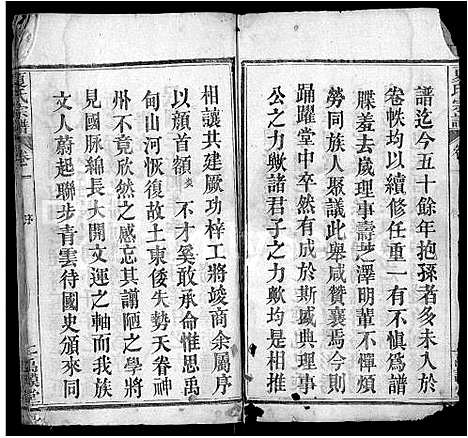 譜迄今五十餘年抱孫者多未入於
卷帙均以續修任重一有不慎為譜
牒羞去歲理事壽芝澤明輩不憚煩
勞同族人聚議此舉咸贊襄焉今則
踊躍堂中卒然有成於斯盛典理事
公之力歟諸君子之力歟均是相推
相讓其建厥功梓工將竣商余属序
以顏首額
不才能思禹
甸山河恢復故土東倭失勢天眷神
州不竟欣然之感忘其謭陋之學將
見國脉綿長大開文運之軸而我族
文人蔚起聯步青雲待國史頒來同
夏氏宗譜
卷一
序